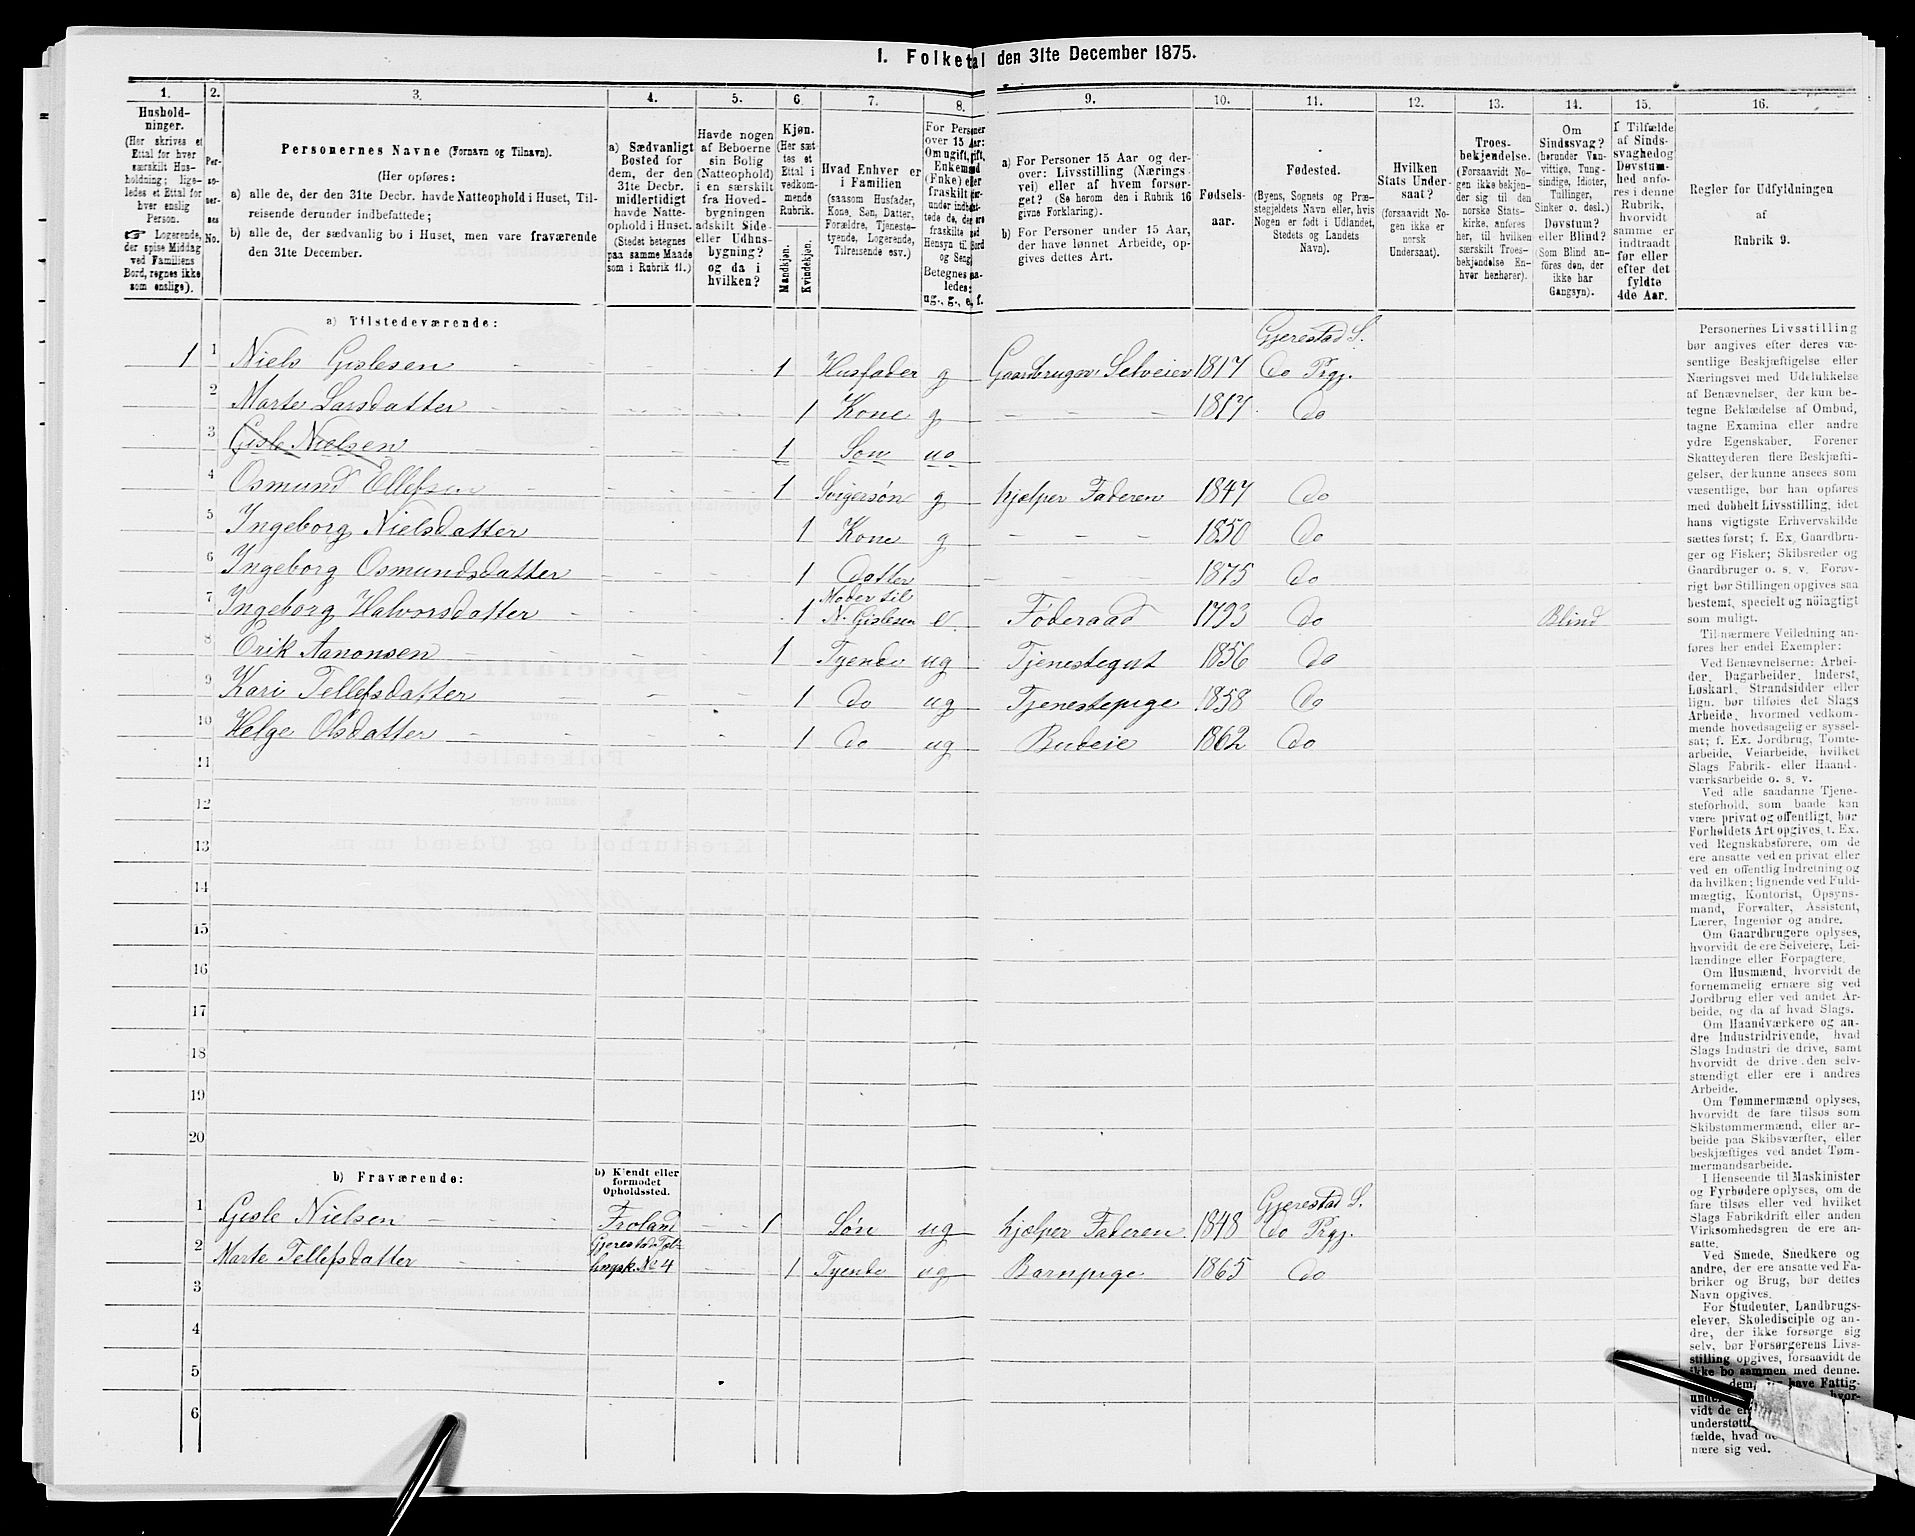 1. Folketal den 31te December 1875.
1. 2. 3. 4. 5. 6. 7. 8. 9. 10. 11. 12. 13. 14. 15. 16.
Hushold-
ninger.
(Her skrives et
Ettal for hver
særskilt Hus-
holdning; lige-
ledes et Ettal for
hver enslig
Person.
☞ Logerende,
der spise Middag
ved Familiens
Bord, regnes ikke
som enslige).
Per-
so-
ner-
nes
No.
Personernes Navne (Fornavn og Tilnavn).
(Her opføres:
a) alle de, der den 31te Decbr. havde Natteophold i Huset, Til-
reisende derunder indbefattede;
b) alle de, der sædvanlig bo i Huset, men vare fraværende
den 31te December.
a) Sædvanligt
Bosted for
dem, der den
31te Decbr.
midlertidigt
havde Natte-
ophold i Huset.
(Stedet betegnes
paa samme Maade
som i Rubrik 11.)
Havde nogen
af Beboerne
sin Bolig
(Natteophold)
i en særskilt
fra Hoved-
bygningen
adskilt Side-
eller Udhus-
bygning?
og da i
hvilken?
Kjøn.
(Her sæt-
tes et
Ettal i
vedkom-
mende
Rubrik.
Mandkjøn.
Kvindekjøn.
Hvad Enhver er
i Familien
(saasom Husfader,
Kone, Søn, Datter,
Forældre, Tjeneste-
tyende, Logerende,
Tilreisende osv.)
For Personer
over 15 Aar:
Om ugift, gift,
Enkemand
(Enke) eller
fraskilt
Hensyn til Bord
og Seng
Betegnes saa-
ledes:
ug., g., e, f.
a) For Personer 15 Aar og der-
over: Livsstilling (Nærings-
vei) eller af hvem forsør-
get? (Se herom den i Rubrik 16
givne Forklaring).
b) For Personer under 15 Aar,
der have lønnet Arbeide, op-
gives dettes Art.
Fødsels-
aar.
Fødested.
(Byens, Sognets og Præ-
stegjeldets Navn eller, hvis
Nogen er født i Udlandet,
Stedets og Landets
Navn).
Hvilken
Stats Under-
saat?
(forsaavidt No-
gen ikke er
norsk
Undersaat).
Troes-
bekjendelse.
(Forsaavidt No-
gen ikke bekjen-
der sig til den
norske Stats-
kirke, anføres
her, til hvilken
særskilt Troes-
bekjendelse En-
hver henhører).
Om
Sindssvag?
(herunder Van-
vittige, Tung-
sindige, Idioter,
Tullinger,
Sinker o. desl.)
Døvstum?
eller Blind?
(Som Blind an-
føres den, der
ikke har
Gangsyn).
I Tilfælde
af Sinds-
svaghed og
Døvstum-
hed anfø-
res i denne
Rubrik,
hvorvidt
samme er
indtraadt
før eller
efter det
fyldte
4de Aar.
Regler for Udfyldningen
af
Rubrik 9.
a) Tilstedeværende:
Gjerestad S.
1 1 Niels Gislesen 1 Husfader g Gaardbruger Selveier 1817 do Prgj.
2 Marte Larsdatter 1 Kone g 1817 do
3 Gisle Nielsen 1 Søn ug
4 Osmund Ellefsen 1 Svigersøn g hjælper Faderen 1847 Do
5 Ingeborg Nielsdatter 1 Kone g 1850 Do
6 Ingeborg Osmundsdatter 1 Datter 1875 Do
Moder til
7 Ingeborg Halvorsdatter 1 N. Gislesen e Føderaad 1793 Do Blind
8 Erik Aanonsen 1 Tyende ug Tjenestegut 1856 Do
9 Kari Tellefsdatter 1 do ug Tjenestepige 1858 Do
10 Helge Olsdatter 1 Do ug Budeie 1862 Do
11
12
13
14
15
16
17
18
19
20
b) Fraværende:
b) Kjendt eller
formodet
Opholdssted.
Gjerestad S.
1 Gisle Nielsen Froland 1 Søn ug hjælper Faderen 1848 do Prgj.
Gjerestad Tæl-
2 Marte Tellefsdatter lingsk. No 4 1 Tyende ug Barnpige 1865 Do
3
4
5
6
Personernes Livsstilling
bør angives efter deres væ-
sentlige Beskjæftigelse eller
Næringsvei med Udelukkelse
af Benævnelser, der kun be-
tegne Beklædelse af Ombud,
tagne Examina eller andre
ydre Egenskaber. Forener
Skatteyderen flere Beskjæfti-
gelser, der kunne ansees som
væsentlige, bør han opføres
med dobbelt Livsstilling, idet
hans vigtigste Erhvervskilde
sættes først; f. Ex. Gaardbru-
ger og Fisker; Skibsreder og
Gaardbruger o. s. v. Forøv-
rigt bør Stillingen opgives saa
bestemt, specielt og nöiagtigt
som muligt.
Til nærmere Veiledning an-
føres her endel Exempler:
Ved Benævnelserne: Arbei-
der, Dagarbeider, Inderst,
Løskarl, Strandsidder eller
lign. bør tilføies det Slags
Arbeide, hvormed vedkom-
mende hovedsagelig er syssel-
sat; f. Ex. Jordbrug, Tomte-
arbeide, Veiarbeide, hvilket
Slags Fabrik- eller Haand-
værksarbeide o. s. v.
Ved alle saadanne Tjene-
steforhold, som baade kan
være privat og offentligt, bør
Forholdets Art opgives, t. Ex.
ved Regnskabsførere, om de
ere ansatte ved en privat eller
ved en offentlig Indretning og
da hvilken; lignende ved Fuld-
mægtig, Kontorist, Opsyns-
mand, Forvalter, Assistent,
Lærer, Ingeniør og andre.
Om Gaardbrugere oplyses,
hvorvidt de ere Selveiere, Lei-
lændinge eller Forpagtere.
Om Husmænd, hvorvidt de
fornemmelig ernære sig ved
Jordbrug eller ved andet Ar-
beide, og da af hvad Slags.
Om Haandværkere og an-
dre Industridrivende, hvad
Slags Industri de drive, samt
hvorvidt de drive den selv-
stændigt eller ere i andres
Arbeide.
Om Tømmermænd oplyses,
hvorvidt de fare tilsøs som
Skibstømmermænd, eller ar-
beide paa Skibsværfter, eller
beskjæftiges ved andet Tøm-
mermandsarbeide.
I Henseende til Maskinister
og Fyrbødere oplyses, om de
fare tilsøs eller ved hvilket
Slags Fabrikdrift eller anden
Virksomhedsgren de ere an-
satte.
Ved Smede, Snedkere og
andre, der ere ansatte ved Fa-
briker og Brug, bør dettes
Navn opgives.
For Studenter, Landbrugs-
elever, Skoledisciple og an-
dre, der ikke forsørge sig
selv, bør Forsørgerens Livs-
stilling opgives, forsaavidt de
ikke bo sammen med denne.
dem, have Fattig-
hvor-
vidt de
understøtt
fælde, hvad de
nære sig ved.